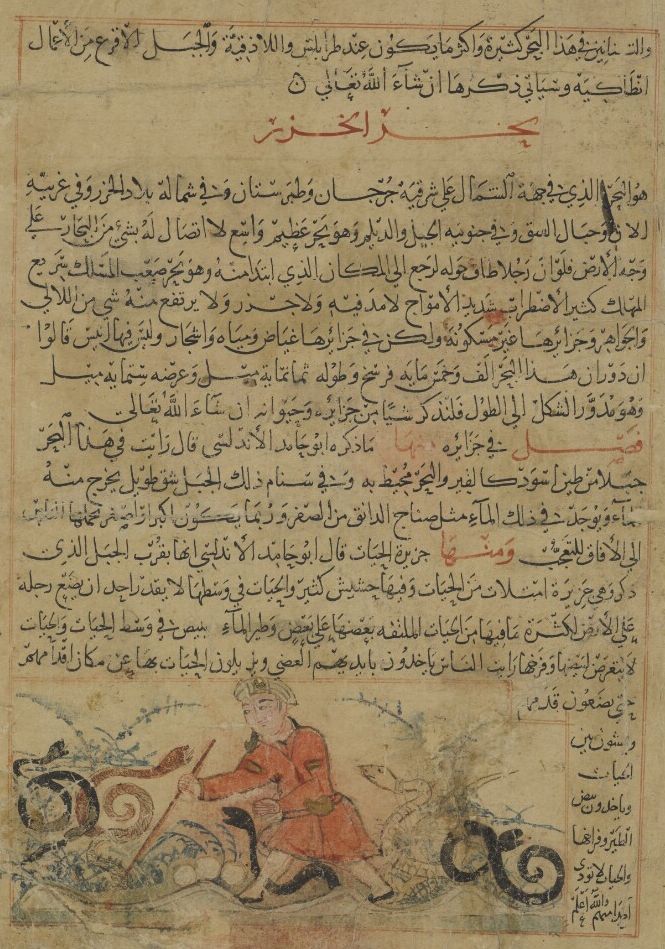 والتنانين في هذا البحر كثيرة واكثر ما يكون عند طرابلس واللاذقية والجبل الاقرع من الاعمال
انطاكيه وسياتي ذكرها ان شاء الله تعالى
بحر الخزر
هو البحر الذي في جهة الشمال على شرقيه جرجان وطبرستان وفي شماله بلاد الخزر وفي غربيه
اللان وجبال القبق وفي جنوبيه الجيل والديلم وهو بحر عظيم واسع لا اتصال له بشئ من البحار على
وجه الارض فلو ان رجلا طاف حوله لرجع الى المكان الذي ابتدا منه وهو بحر صعب المسلك سريع
المهلك كثير الاضطراب شديد الامواج لا مد فيه ولا جزر ولا يرتفع منه شي من اللالي
والجواهر وجزائرها غير مسكونة ولكن في جزائرها غياض ومياه واشجار وليس فيها انيس قالوا
ان دوران هذا البحر الف وخمس مايه فرسخ وطوله ثمانماية ميل وعرضه ستمايه ميل
وهو مدور الشكل الى الطول فلنذكر شيا من جزائره وحيوانه ان شاء الله تعالى
فصل في جزائره منها ما ذكره ابو حامد الاندلسي قال رايت في هذا البحر
جبلا من طين اسود كالقير والبحر محيط به وفي سنام ذلك الجبل شق طويل يخرج منه
الماء ويوجد في ذلك الماء مثل صناج الدانق من الصفر وربما يكون اكبر او اصغر يحملها الناس
الى الآفاق للتعجب ومنها جزيرة الحيات قال ابو حامد الاندلسي انها بقرب الجبل الذي
ذكر وهي جزيرة امتلات من الحيات وفيها حشيش كثير والحيات في وسطها لا يقدر احد ان يضع رجله
على الارض لكثرة ما فيها من الحيات الملتفه بعضها على بعض وطير الماء يبيض في وسط الحيات والحيات
لا يتعرض لبيضها وفرخها رايت الناس ياخذون بايديهم العصي ويزيلون الحيات بها عن مكان اقدامهم
حتى يضعون قدمهم
ويمشون بين
الحيات
وياخذون بيض
الطير وفراخها
والحيات لا توذي
احدا منهم والله اعلم